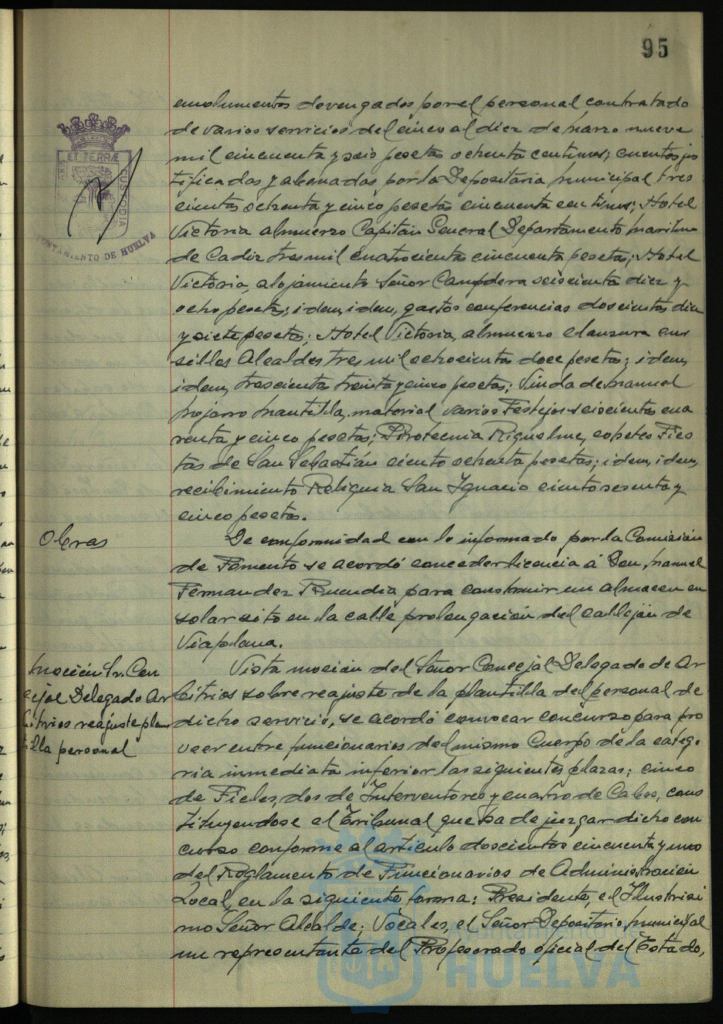 95
ET TERRÆ
CUSTODIA
AYUNTAMIENTO DE HUELVA
emolumentos devengados por el personal contratado
de varios servicios del cinco al diez de marzo nueve
mil cincuenta y seis pesetas ochenta centimos; cuentas jus
tificadas y abonadas, por la Depositaria municipal tres
cientas ochenta y cinco pesetas cincuenta centimos; Hotel
Victoria almuerzo Capitán General Departamento maritimo
de Cadiz tres mil cuatrocientas cincuenta pesetas; Hotel
Victoria, alojamiento Señor Campdera seiscientas diez y
ocho pesetas; idem, idem, gastos conferencias doscientas diez
y siete pesetas; Hotel Victoria, almuerzo clausura cur
sillos Alcaldes tres mil ochocientas doce pesetas; idem,
idem, trescientas treinta y cinco pesetas; Viuda de Manuel
Mantilla, material varios Festejos seiscientas cua
renta y cinco pesetas; Pirotecnia Riquelme, cohetes Fies
tas de San Sebastián ciento ochenta pesetas; idem, idem,
recibimiento Reliquia San Ignacio ciento sesenta y
cinco pesetas.
Obras
De conformidad con lo informado por la Comisión
de Fomento se acordó conceder licencia á Don Manuel
Fernandez Buendia para construir un almacen en
solar sito en la calle prolongación del callejón de
Viaplana.
Moción Sr. Con
cejal Delegado Ar
bitrios reajuste plan
tilla personal
Vista moción del Señor Concejal Delegado de Ar
bitrios sobre reajuste de la plantilla del personal de
dicho servicio, se acordó convocar concurso para pro
veer entre funcionarios del mismo Cuerpo de la catego
ria inmediata inferior las siguientes plazas; cinco
de Fieles, dos de Interventores y cuatro de Cabos, cons
tituyendose el Tribunal que ha de juzgar dicho con
curso conforme al articulo doscientos cincuenta y uno
del Reglamento de Funcionarios de Administración
Local, en la siguiente forma: Presidente, el Ilustrisi
mo Señor Alcalde; Vocales, el Señor Depositario municipal
un representante del Profesorado oficial del Estado,
HUELVA